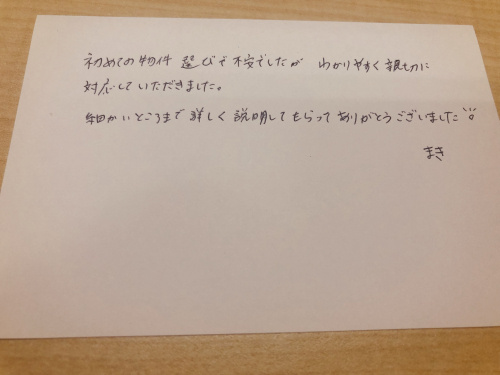 初めての物件 選びで不安でしたが わかりやすく親切に
対応していただきました。
細かいところまで詳しく説明してもらってありがとうございました
まき